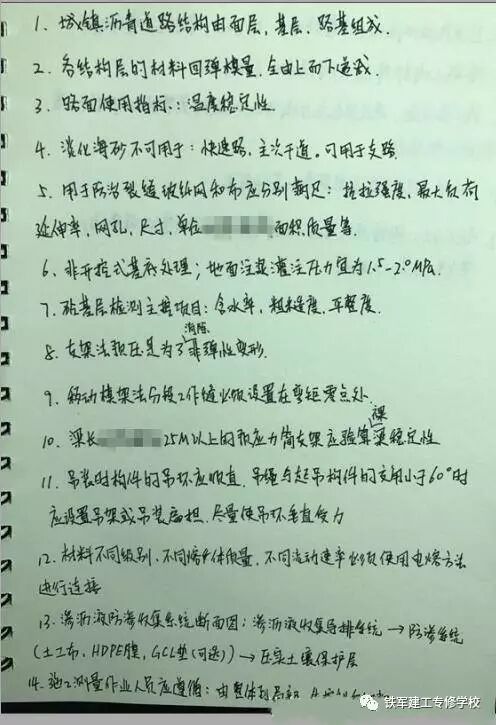 1. 城镇沥青道路结构由面层，基层，路基组成.
2. 各结构层的材料回弹模量，全由上而下递减.
3. 路面使用指标：温度稳定性
4. 淡化海砂不可用于：快速路，主次干道。可用于支路
5. 用于防治裂缝玻纤网和布应分别满足：抗拉强度，最大负荷
延伸率，网孔，尺寸，单位 面积质量等.
6. 非开挖式基底处理；地面注浆灌注压力宜为1.5-2.0MPa.
7. 砼基层检测主控项目：含水率，粗糙度，平整度.
8. 支架法预压是为了消除非弹性变形.
9. 移动模架法分段工作缝必须设置在弯矩零点处
10. 梁长 25M以上的预应力简支梁应验算裸梁稳定性
11. 吊装时构件的吊环应顺直，吊绳与起吊构件的交角小于60°时
应设置吊架或吊装扁担，尽量使吊环垂直受力
12. 材料不同级别，不同熔体质量，不同流动速率必须使用电熔方法
进行连接
13. 渗沥液防渗收集系统断面图：渗沥液收集导排系统 → 防渗系统
(土工布，HDPE膜，GCL垫(可选)) → 压实土壤保护层
14. 施工测量作业人员应遵循：由整体到局部
铁军建工专修学校